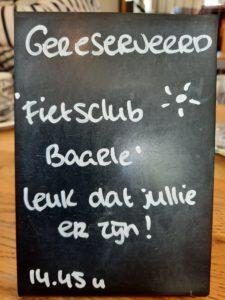 Gereserveerd
'Fietsclub
Baarle'
leuk dat jullie
er zijn!
14.45 u